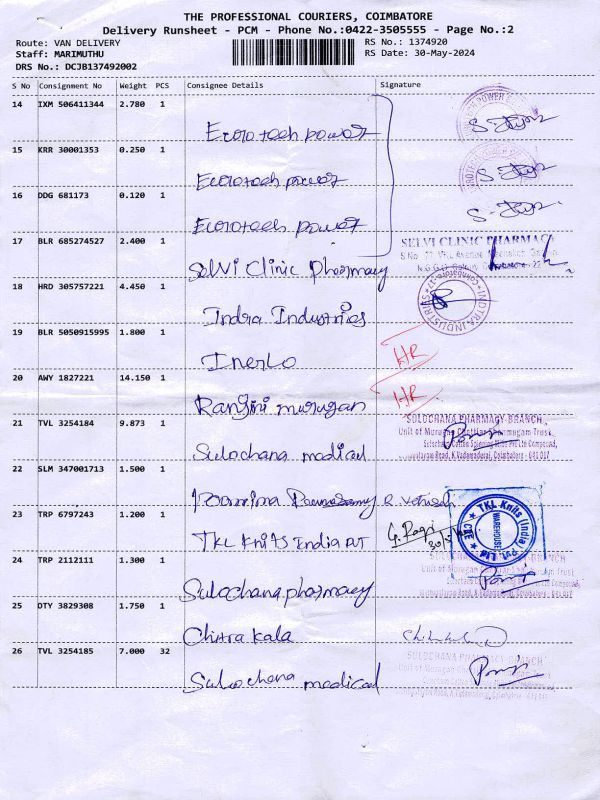 THE PROFESSIONAL COURIERS, COIMBATORE
Delivery Runsheet - PCM - Phone No.:0422-3505555 - Page No.:2
Route: VAN DELIVERY RS No.: 1374920
Staff: MARIMUTHU RS Date: 30-May-2024
DRS No.: DCJB137492002
S No Consignment No Weight PCS Consignee Details Signature
14 IXM 506411344 2.780 1
Eurotech power
15 KRR 30001353 0.250 1
Eurotech power
16 DDG 681173 0.120 1
Eurotech power
17 BLR 685274527 2.400 1
SELVI CLINIC PHARMACY
Selvi Clinic Pharmacy
18 HRD 305757221 4.450 1
INDRA INDUSTRIES
Indra Industries
19 BLR 5050915995 1.800 1
HR
Inerlo
20 AWY 1827221 14.150 1
HR
Ranjini murugan
21 TVL 3254184 9.873 1
SULOCHANA PHARMACY-BRANCH
Unit of Murugan Trust
Sulochana Cotton Spinning Mills Pvt Ltd Compound,
Coimbatore - 641 017
Sulochana medical
22 SLM 347001713 1.500 1
Poornima
23 TRP 6797243 1.200 1
TKL Knits (India) Pvt. Ltd
WAREHOUSE
CBE
TKL Knits India PVT
24 TRP 2112111 1.300 1
Sulochana pharmacy
25 DTY 3829308 1.750 1
Chitra kala
26 TVL 3254185 7.000 32
SULOCHANA PHARMACY-BRANCH
Sulochana medical